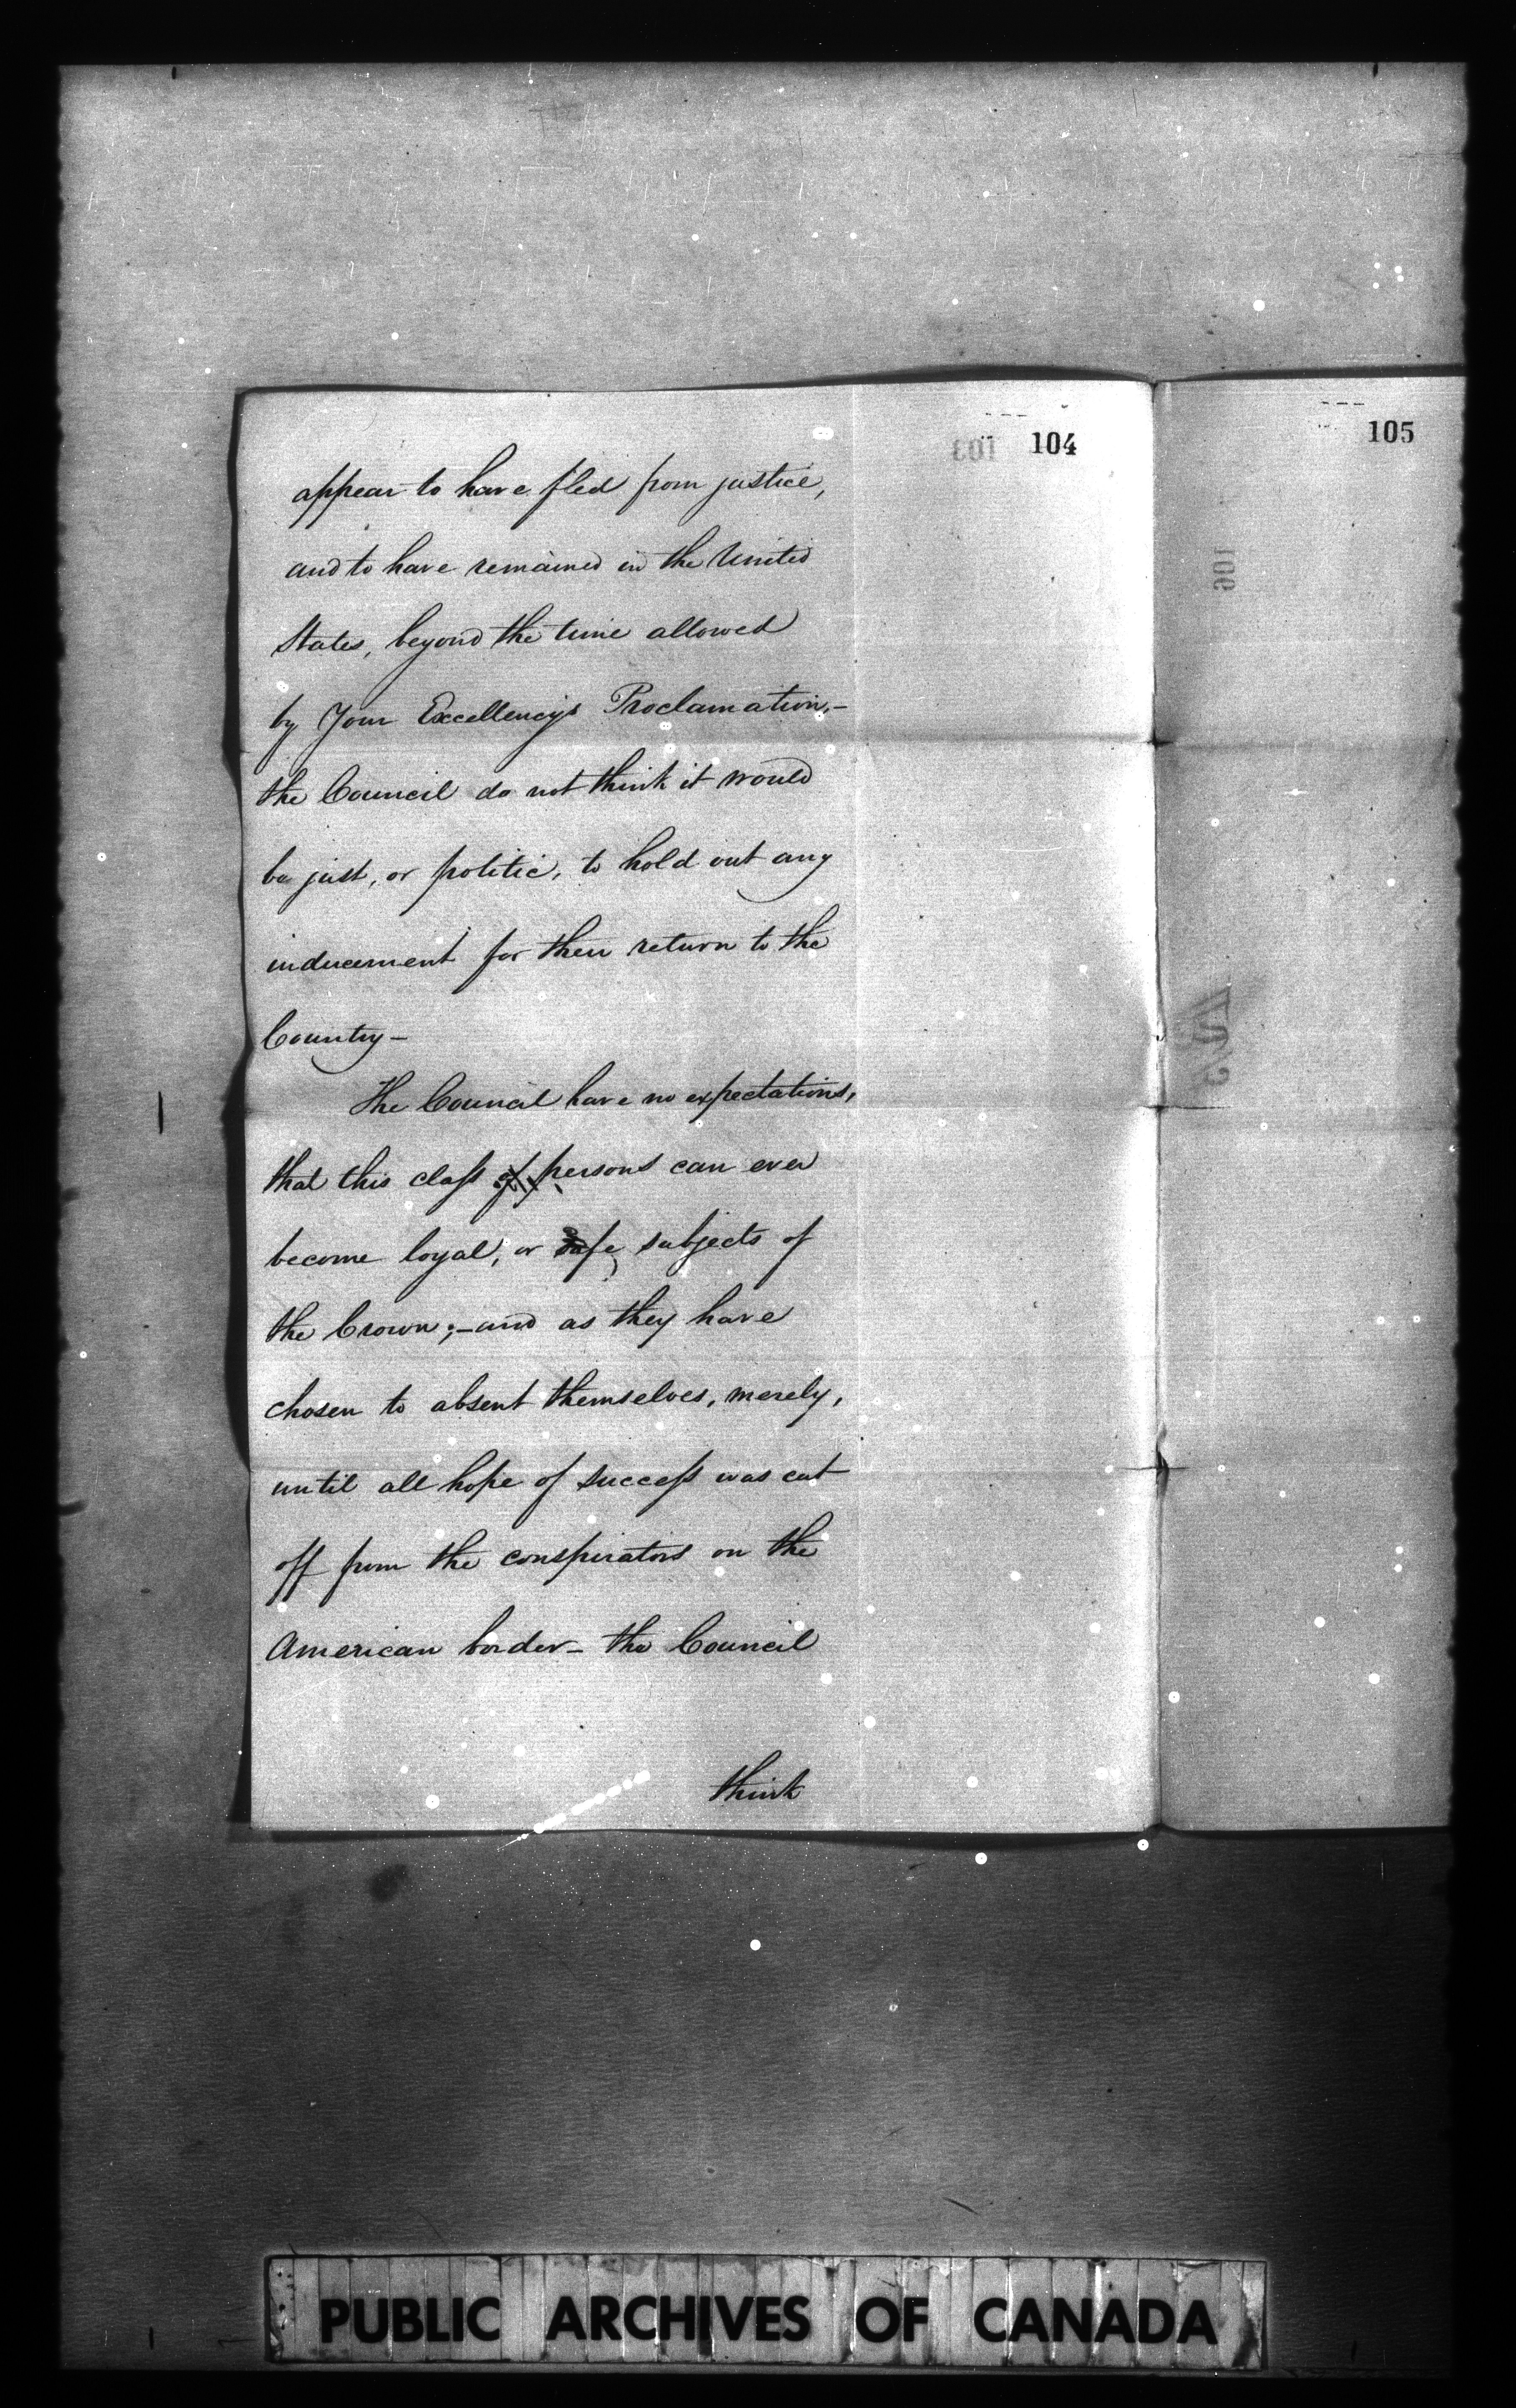 103 104
105
106
appear to have fled from justice,
and to have remained in the United
States, beyond the time allowed
by Your Excellency's Proclamation,—
the Council do not think it would
be just, or politic, to hold out any
inducement for their return to the
Country—
The Council have no expectations,
that this class of persons can ever
become loyal, or safe, subjects of
the Crown;—and as they have
chosen to absent themselves, merely,
until all hope of success was cut
off from the conspirators on the
American border— the Council
think
PUBLIC ARCHIVES OF CANADA